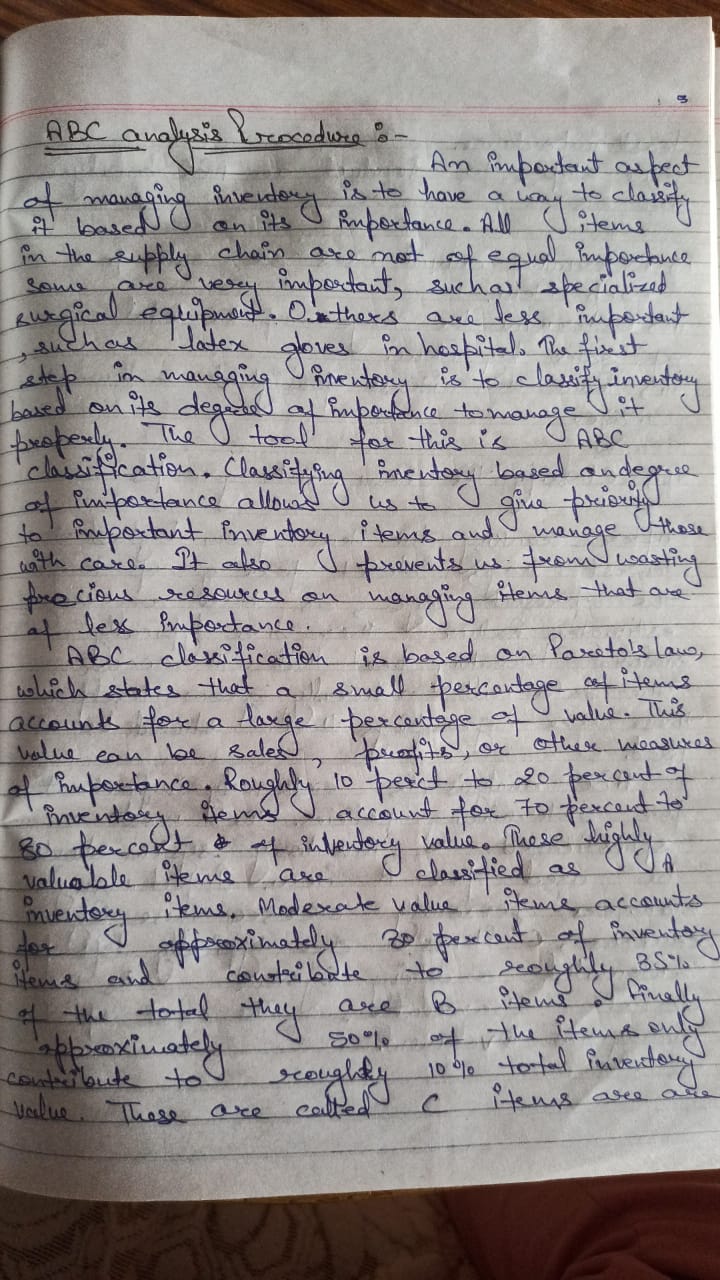 3
ABC analysis Procedure :-
An important aspect
of managing inventory is to have a way to classify
it based on its importance. All items
in the supply chain are not of equal importance
some are very important, such as specialized
surgical equipment. Others are less important
, such as latex gloves in hospital. The first
step in managging inventory is to classify inventory
based on its degree of importance to manage it
properly. The tool for this is ABC
classification. Classifying inventory based on degree
of importance allows us to give priority
to important inventory items and manage those
with care. It also prevents us from wasting
precious resources on managing items that are
of less importance.
ABC classification is based on Pareto's law,
which states that a small percentage of items
accounts for a large percantage of value. This
value can be sales, profits, or other measures
of importance. Roughly 10 perct to 20 percent of
inventory items account for 70 percent to
80 percent of inventory value. These highly
valuable items are classified as A
inventory items. Moderate value items accounts
for approximately 30 percent of inventory
items and contribute to roughly 35%
of the total they are B items. Finally
approximately 50% of the items only
contribute to roughly 10% total inventory
value. These are called C items are are